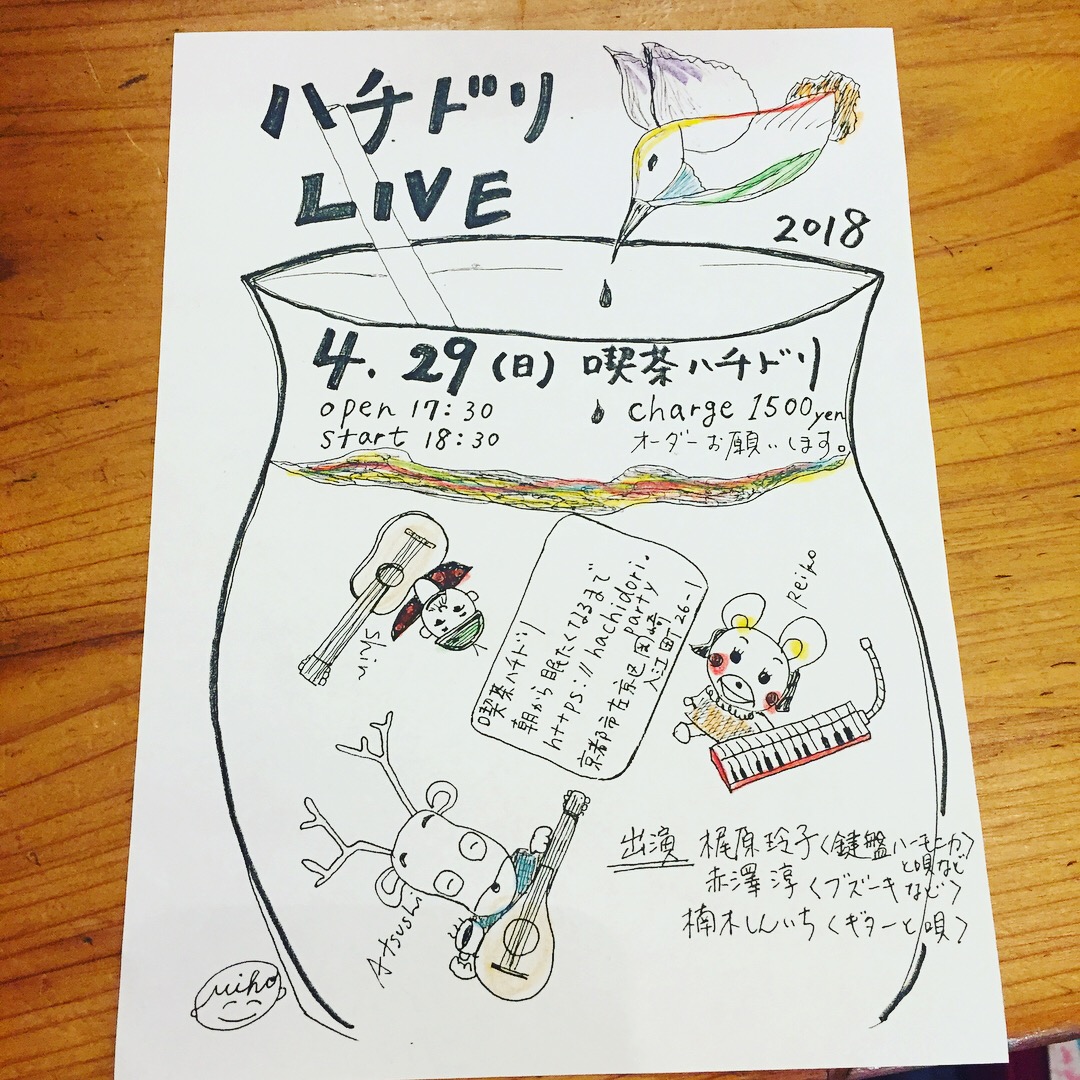 ハチドリ
LIVE
2018
4.29(日) 喫茶ハチドリ
open 17:30
start 18:30
charge 1500yen
オーダーお願いします。
shin
喫茶ハチドリ
朝から眠たくてるまで
https://hachidori.
party
京都市左京区岡崎
入江町26-1
Reiko
Atsushi
出演 梶原玲子〈鍵盤ハーモニカ
と唄など〉
赤澤淳〈ブズーキなど〉
楠木しんいち〈ギターと唄〉
miho